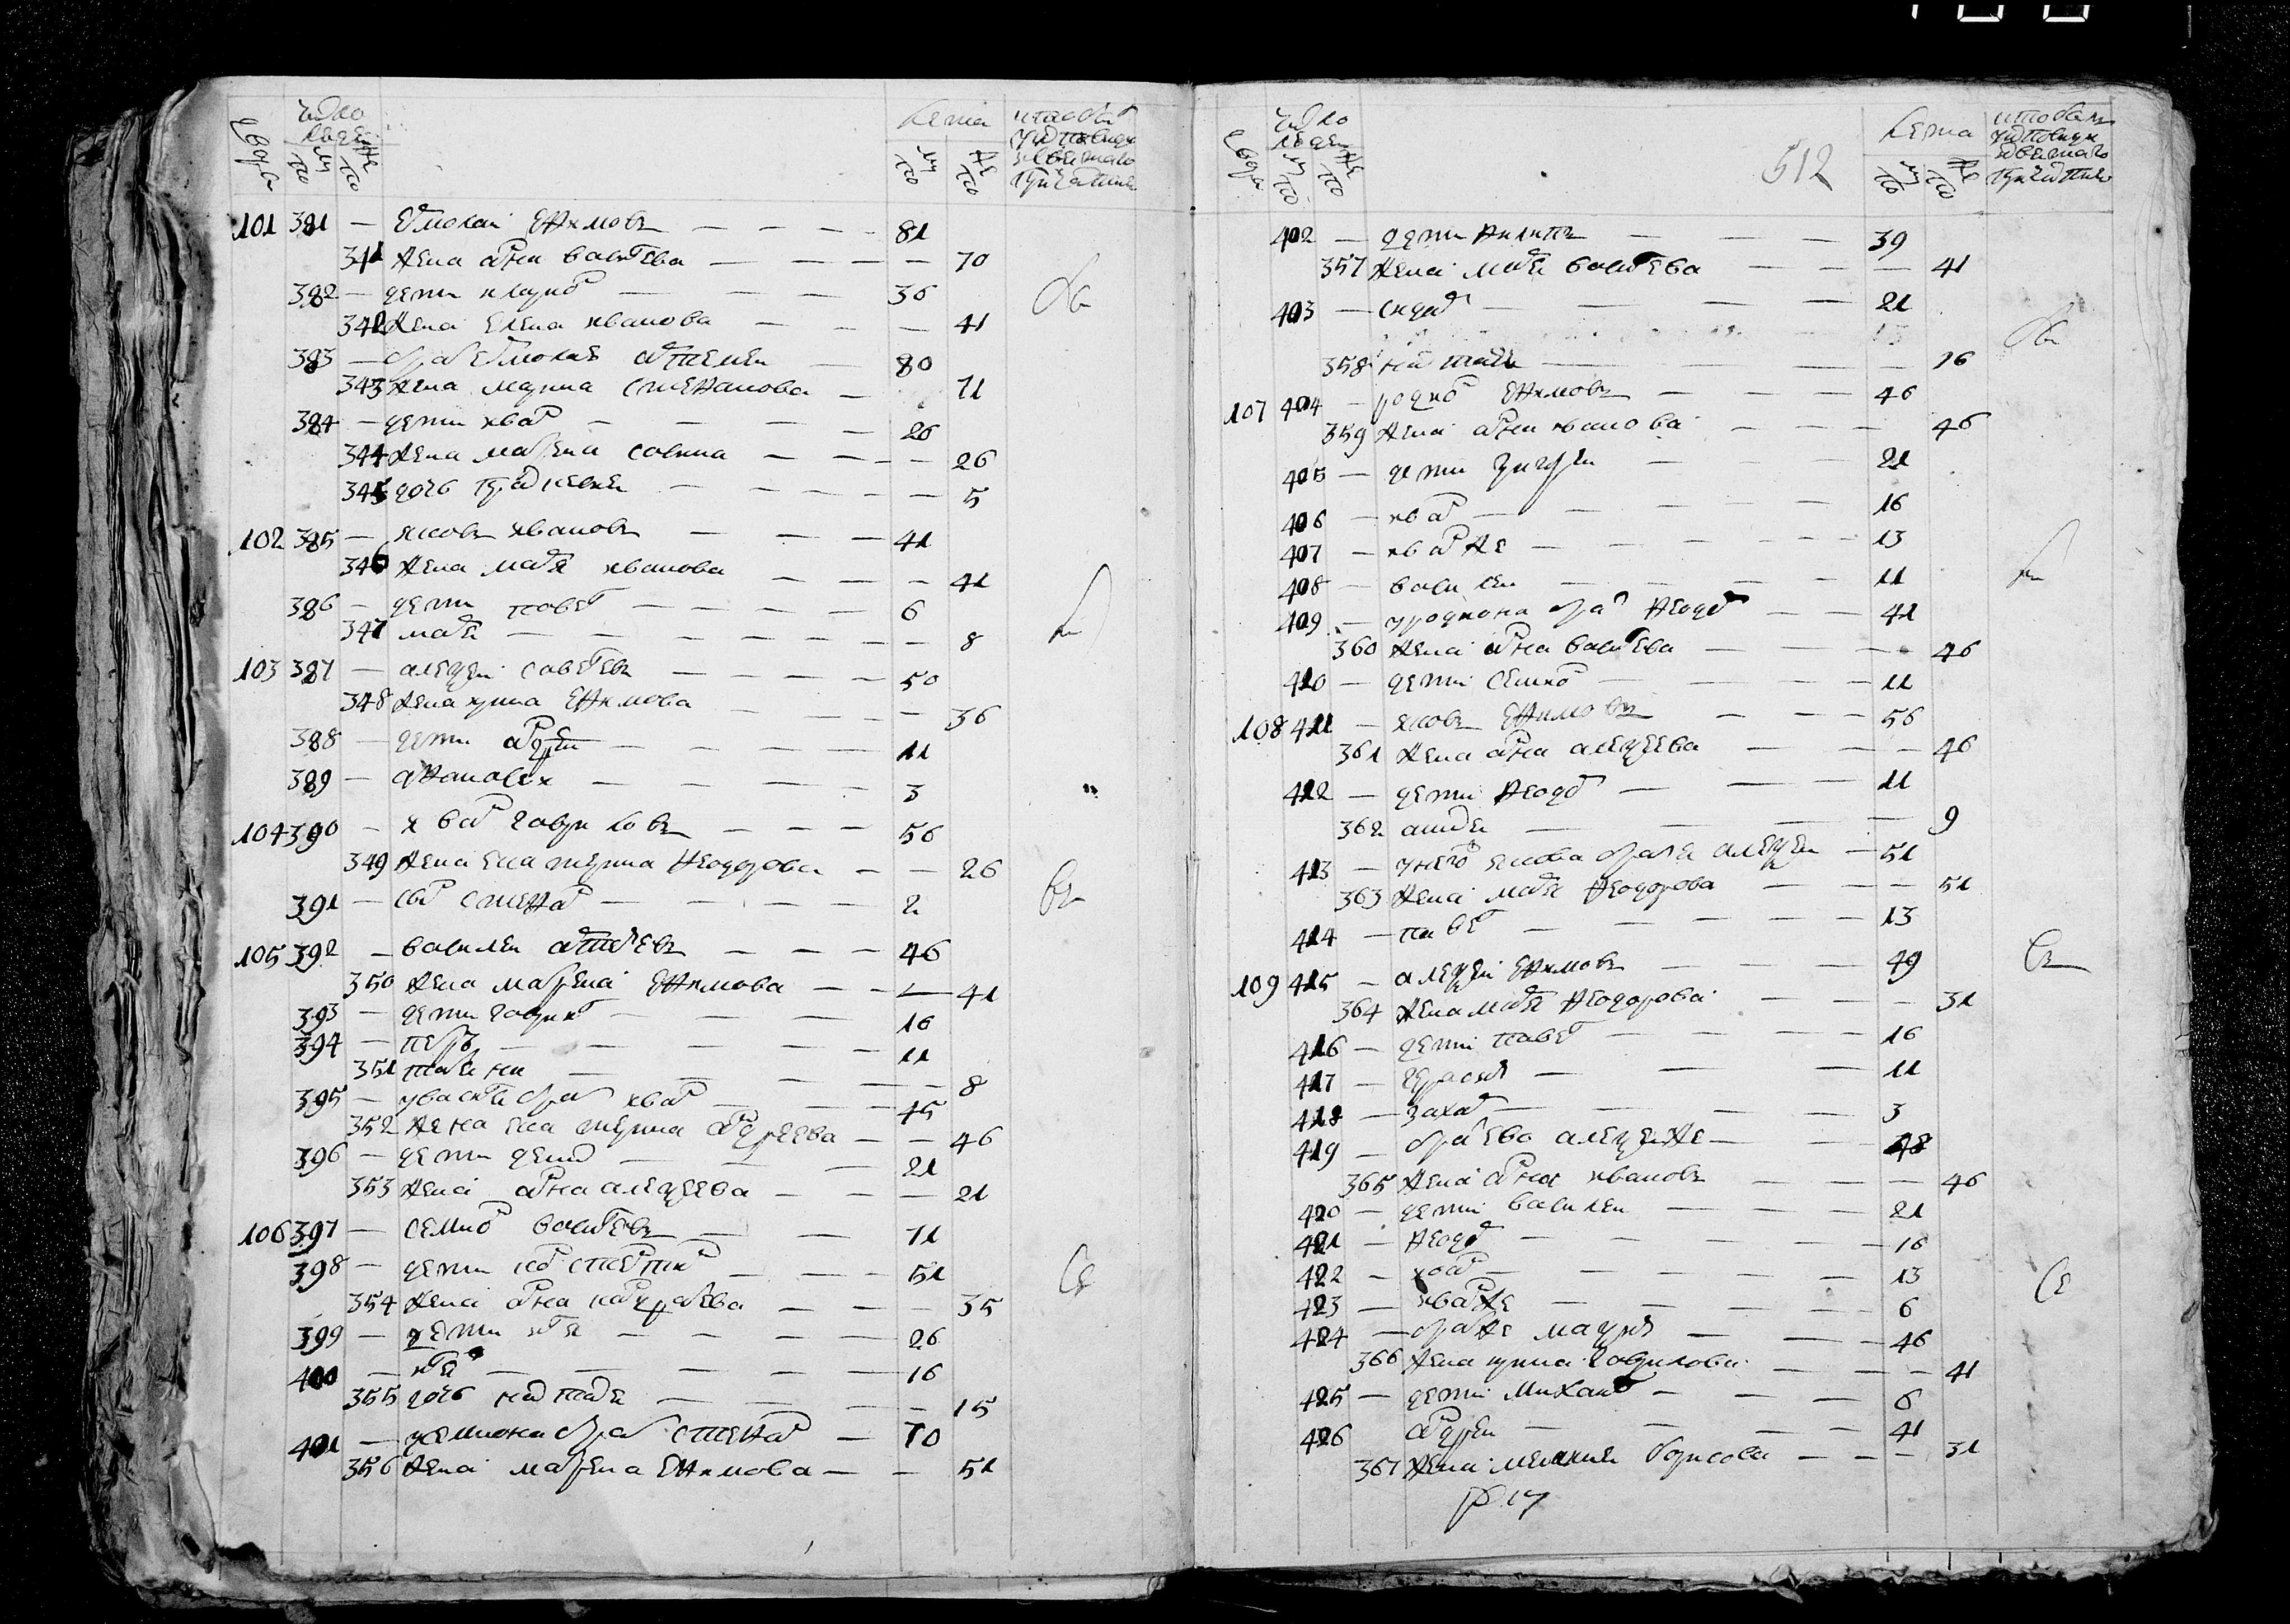 число
людей
двори му по же по лета му по же по
101 381 — Ермолаи Ефимовъ — — — 81
341 жена анна василева — — — — 70
382 — дети клим — — — 36
342 жена Елена иванова — — — 41
383 — брат Ермолаев артемеи 80
343 жена марина степанова — 71
384 — дети иван — — — 26
344 жена марфена савина — — — 26
345 дочь праскевия — — — — 5
102 385 — яковъ ивановъ — — — 41
346 жена маря иванова — — — 41
386 — дети павел — — — — 6
347 маря — — — — — — 8
103 387 — алеѯеи савелевъ — — — — 50
348 жена ирина Ефимова — — — 36
388 — дети андреи — — — — 11
389 — афанасеи — — — — 3
104 390 — иван гавриловъ — — — 56
349 жена екатерина феодорова — — 26
391 — сын степан — — — — 2
105 392 — василеи артаевъ — — — 46
350 жена марфена Ефимова — — — 41
393 — дети гаврил — — — 16
394 — петръ — — — — 11
351 татьяна — — — — — 8
395 — у василя брат иван — — — 45
352 жена екатерина андреева — — 46
396 — дети денис — — — 21
353 жена анна алеѯеева — — — 21
106 397 — семион василевъ — — 71
398 — дети констентин — — — 51
354 жена анна кондратева — — — 35
399 — дети иля — — — — 26
400 — иля — — — — 16
355 дочь наталя — — — — 15
401 — у семиона брат степан — 70
356 жена марфена Ефимова — — 51
число
людей
двори му по же по 512 лета му по же по
402 — дети филип — — — 39
357 жена маря василева — — — 41
403 — сидор — — — 21
358 наталя — — — — 16
107 404 — родион Ефимовъ — — — 46
359 жена анна иванова — — — 46
405 — дети григореи — — 21
406 — иван — — — — 16
407 — иван же — — — — 13
408 — василеи — — — — 11
409 — у родиона брат феодор — — 41
360 жена анна василева — — — — 46
410 — дети семион — — — 11
108 411 — яковъ Ефимовъ — — — 56
361 жена анна алеѯеева — — — 46
412 — дети феодор — — — 11
362 — — — — 9
413 — у него якова братя алеѯеи — 51
363 жена маря феодорова — — — 51
414 — павел — — — — 13
109 415 — алеѯеи Ефимовъ — — — 49
364 жена маря феодорова — — — 31
416 — дети павел — — — — 16
417 — герасим — — — 11
418 — захар — — — — 3
419 — брат ево алеѯеи же — — — 48
365 жена анна ивановъ — — — 46
420 — дети василеи — — — 21
421 — феодор — — — — 16
422 — иван — — — — 13
423 — иван же — — — — 6
424 — брат же — — — 46
366 жена ирина гаврилова — — — 41
425 — дети михаил — — — 8
426 андреи — — — — 41
367 жена мелания борисова — — — 31